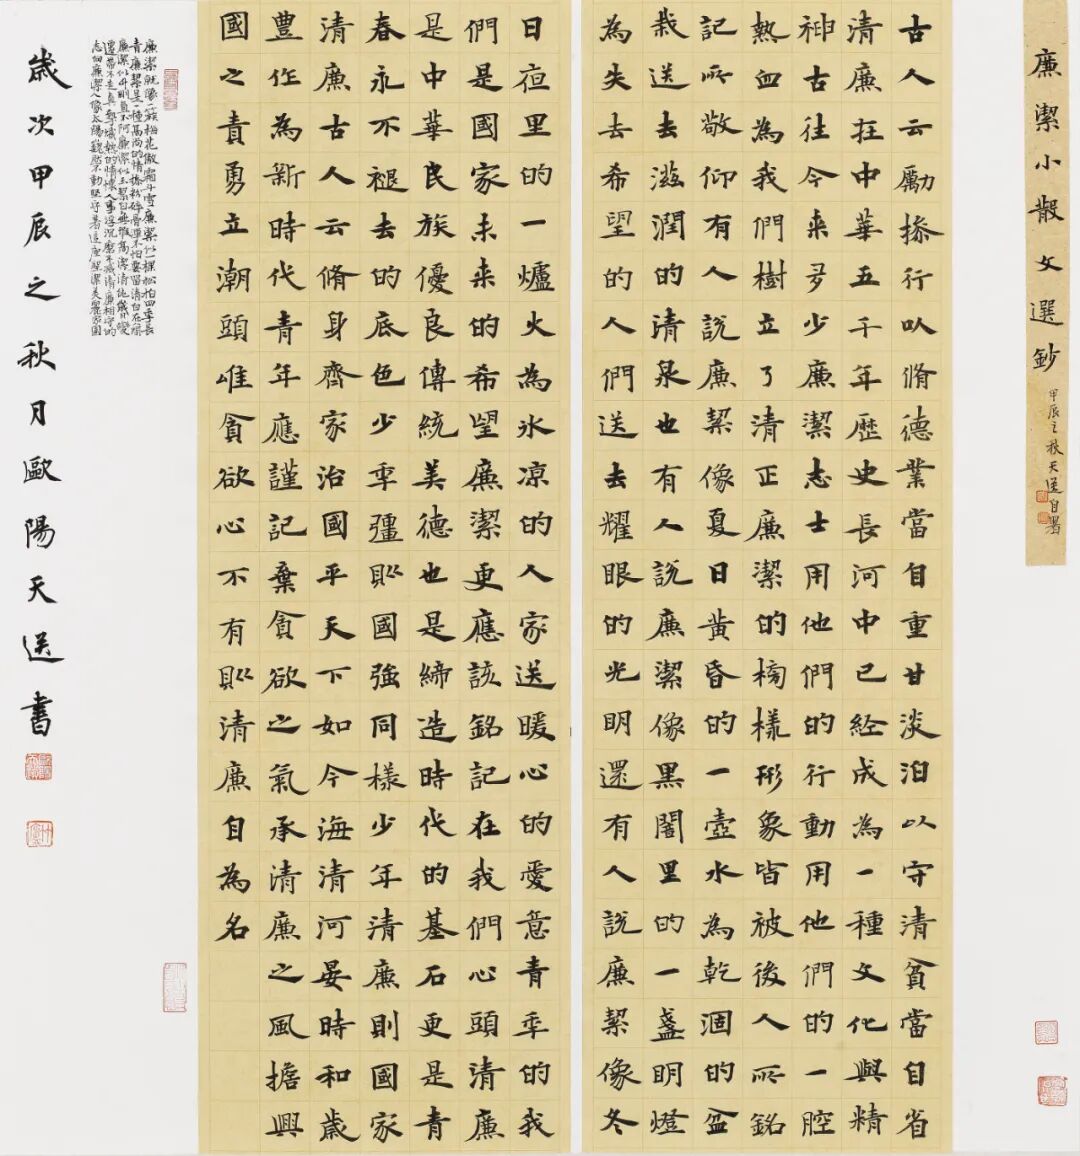 廉潔小散文選鈔
甲辰之秋天送自署
古人云勵操行以脩德業當自重甘淡泊以守清貧當自省
清廉在中華五千年歷史長河中已經成為一種文化與精
神古往今來多少廉潔志士用他們的行動用他們的一腔
熱血為我們樹立了清正廉潔的榜樣形象皆被後人所銘
記所敬仰有人說廉潔像夏日黃昏的一壺水為乾涸的盆
栽送去滋潤的清泉也有人說廉潔像黑闇里的一盞明燈
為失去希望的人們送去耀眼的光明還有人說廉潔像冬
日夜里的一爐火為冰凉的人家送暖心的愛意青年的我
們是國家未来的希望廉潔更應該銘記在我們心頭清廉
是中華民族優良傳統美德也是締造時代的基石更是青
春永不褪去的底色少年彊則國強同樣少年清廉則國家
清廉古人云脩身齊家治國平天下如今海清河晏時和歲
豐作為新時代青年應謹記棄貪欲之氣承清廉之風擔興
國之責勇立潮頭唯貪欲心不有則清廉自為名
廉潔就像一簇梅花傲霜斗雪廉潔似一棵松柏四季長
青廉潔是一種高尚的情操粉碎骨渾不怕要留清白在人間
歲次甲辰之秋月歐陽天送書